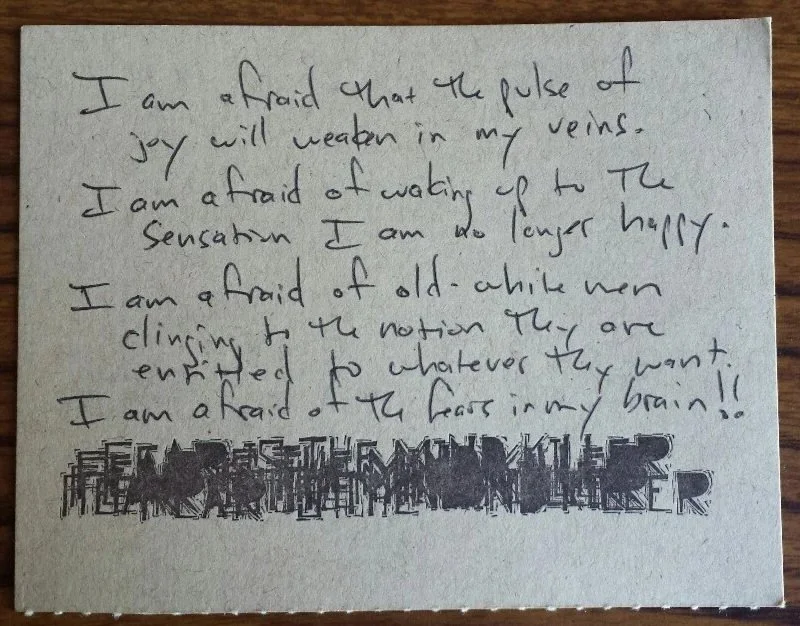 I am afraid that the pulse of
joy will weaken in my veins.
I am afraid of waking up to The
Sensation I am no longer happy.
I am afraid of old-white men
clinging to the notion They are
entitled to whatever they want.
I am afraid of the fears in my brain!!
FEAR IS THE MIND KILLER